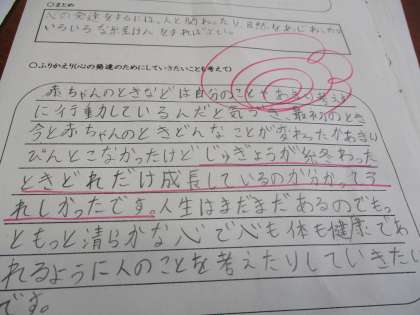 ○まとめ
心の発達をするには、人と関わったり、自然をあじわったり
いろいろな体けんをすればよい。
○ふりかえり(心の発達のためにしていきたいことも考えて)
赤ちゃんのときなどは自分のことを
に行動しているんだと気づき、最初のとき
今と赤ちゃんのときどんなことが変わったかあまり
ぴんとこなかったけどじゅぎょうが終わった
ときどれだけ成長しているのか分かってう
れしかったです。人生はまだまだあるのでも
ともっと清らかな心で心も体も健康であ
れるように人のことを考えたりしていきたい
です。